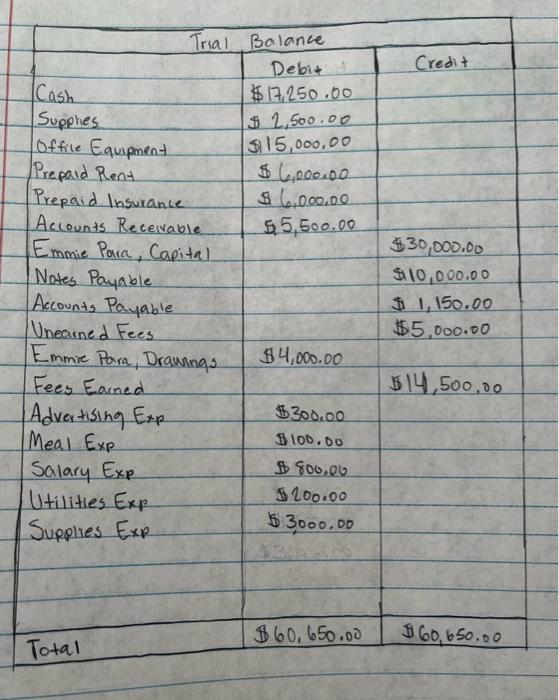 Trial Balance
Debit Credit
Cash $17,250.00
Supplies $2,500.00
Office Equipment $15,000.00
Prepaid Rent $6,000.00
Prepaid Insurance $6,000.00
Accounts Receivable $5,500.00
Emmie Para, Capital $30,000.00
Notes Payable $10,000.00
Accounts Payable $1,150.00
Unearned Fees $5,000.00
Emmie Para, Drawings $4,000.00
Fees Earned $14,500.00
Advertising Exp $300.00
Meal Exp $100.00
Salary Exp $800.00
Utilities Exp $200.00
Supplies Exp $3000.00
Total $60,650.00 $60,650.00